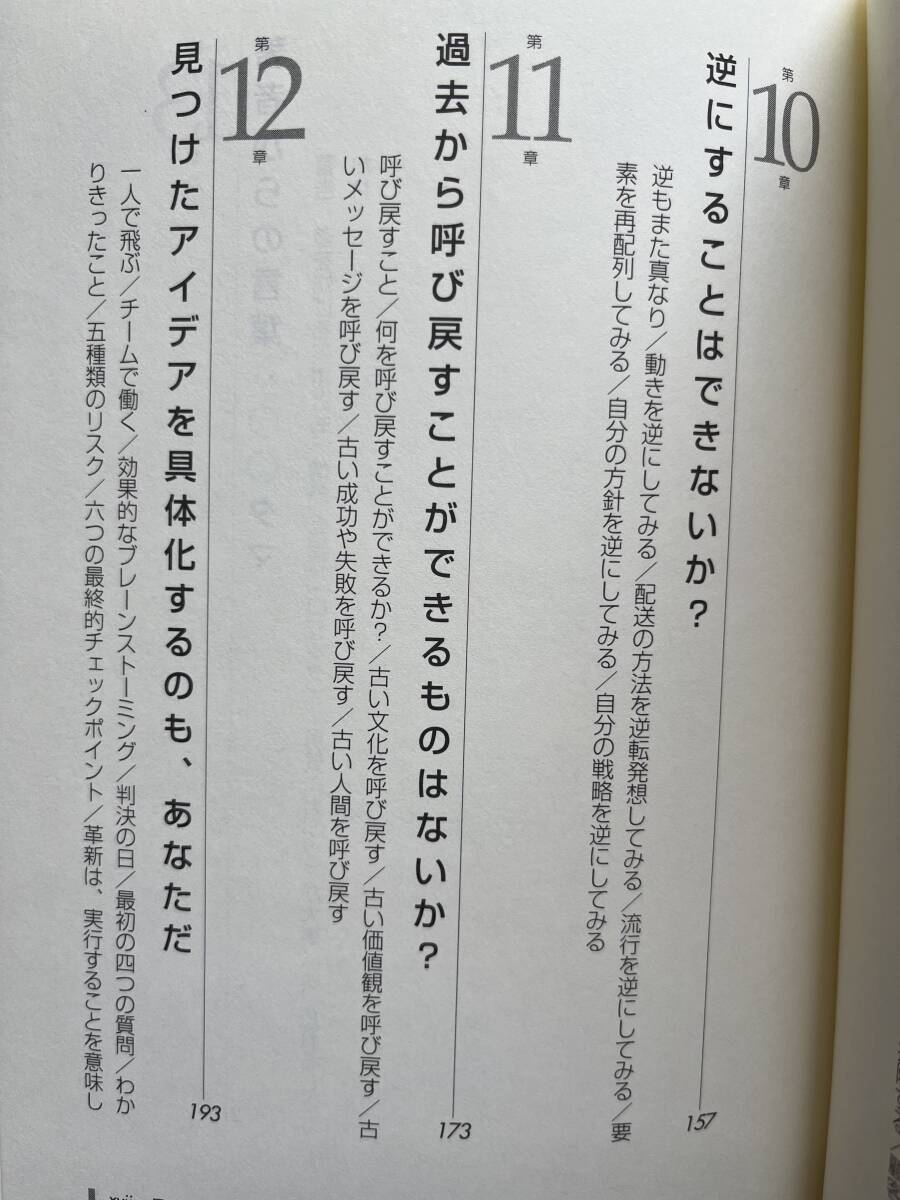 第10章
逆にすることはできないか?
157
逆もまた真なり/動きを逆にしてみる/配送の方法を逆転発想してみる/流行を逆にしてみる/要
素を再配列してみる/自分の方針を逆にしてみる/自分の戦略を逆にしてみる
第11章
過去から呼び戻すことができるものはないか?
173
呼び戻すこと/何を呼び戻すことができるか?/古い文化を呼び戻す/古い価値観を呼び戻す/古
いメッセージを呼び戻す/古い成功や失敗を呼び戻す/古い人間を呼び戻す
第12章
見つけたアイデアを具体化するのも、あなただ
193
一人で飛ぶ/チームで働く/効果的なブレーンストーミング/判決の日/最初の四つの質問/わか
りきったこと/五種類のリスク/六つの最終的チェックポイント/革新は、実行することを意味し